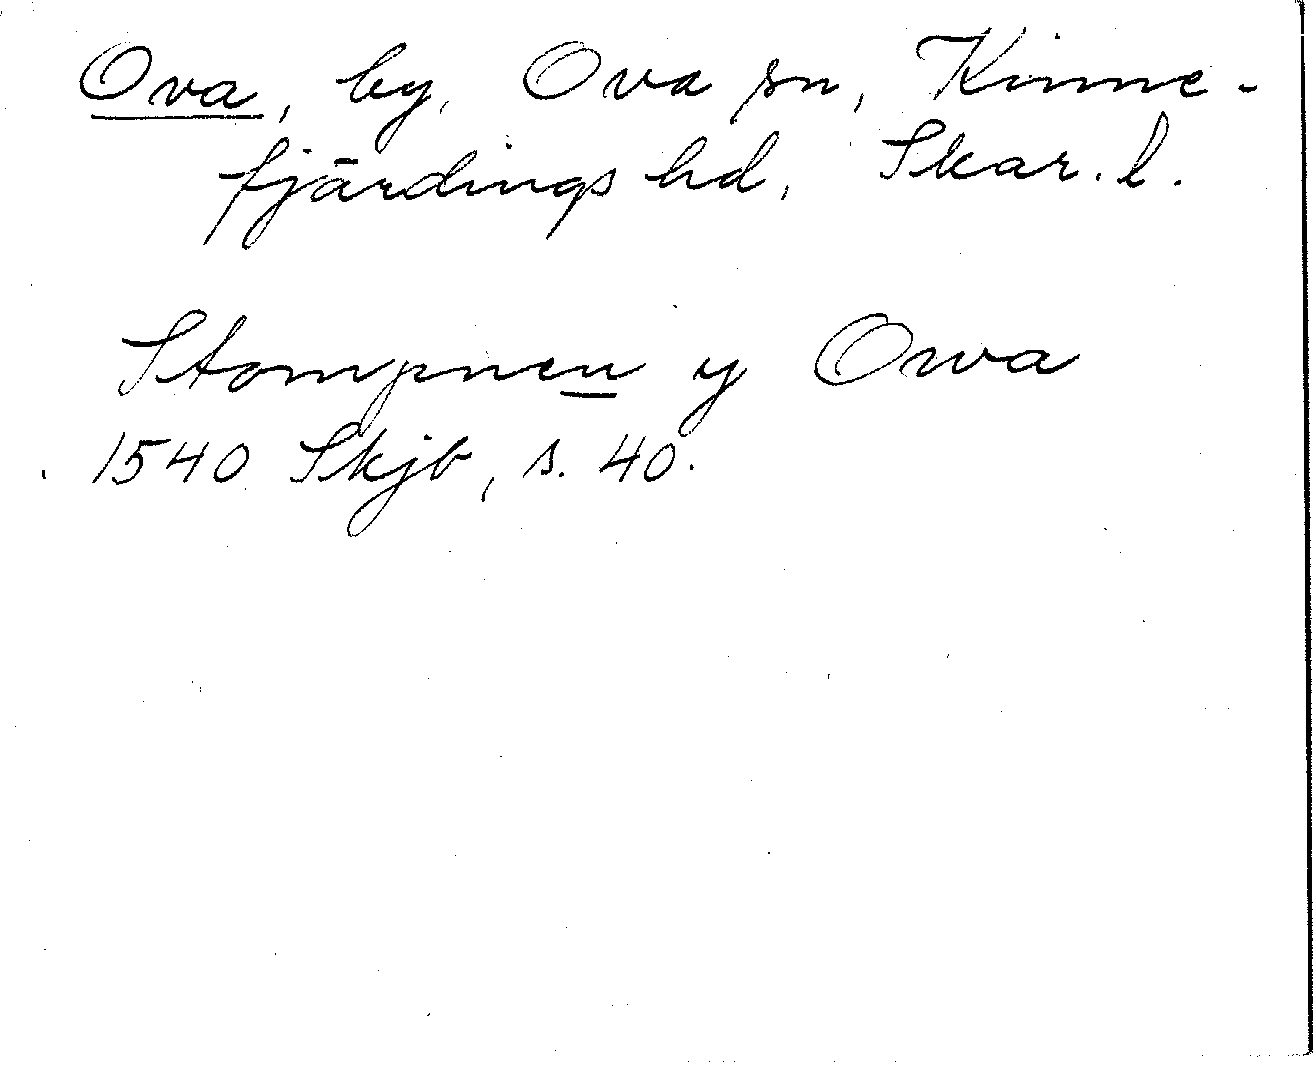 Ova, by, Ova sn, Kinne-
fjärdings hd, Skar. l.
Stompnen y Owa
1540 Skjb, s. 40.